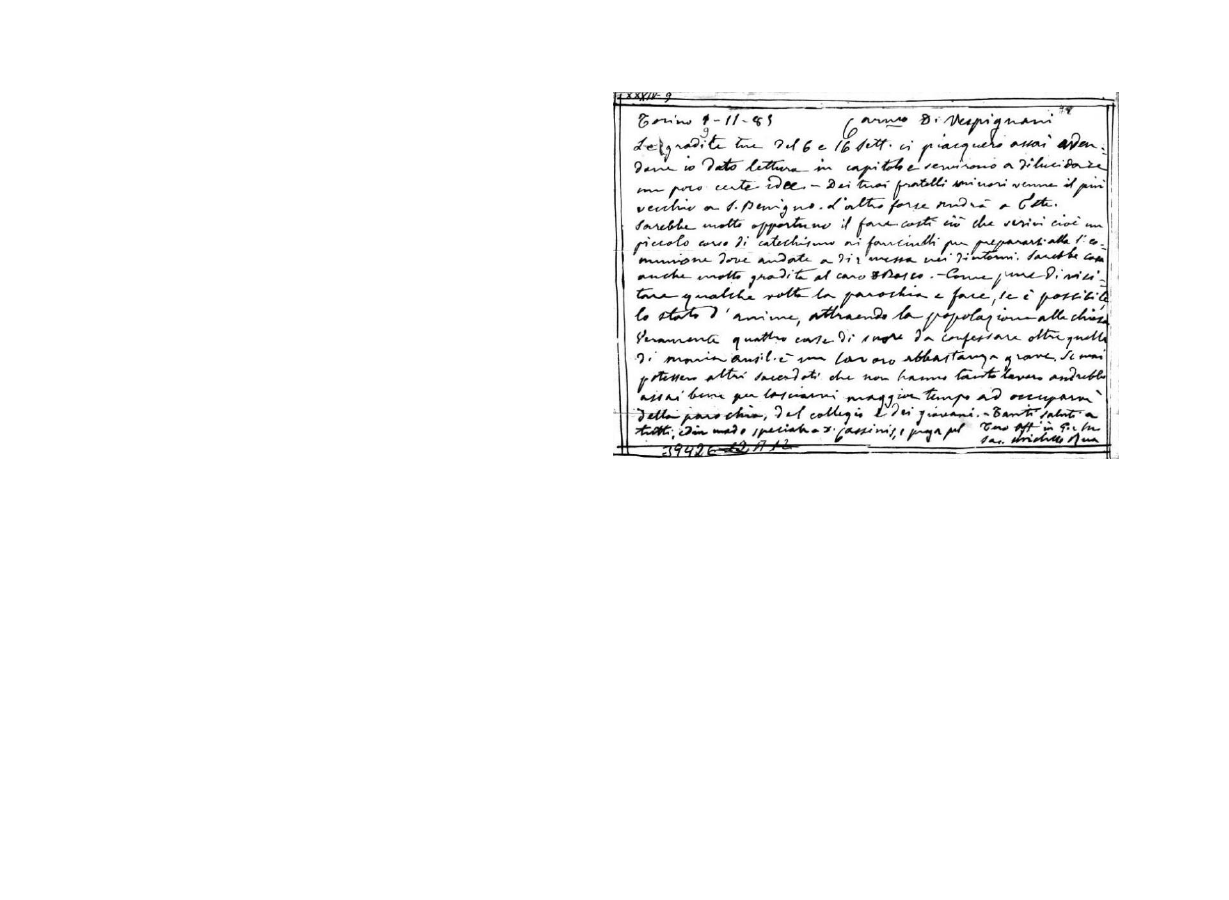 LXXXIV-9
Torino 9-11-83 Carmo D. Vespignani
9
Le gradite tue del 6 e 16 Sett. ci piacquero assai aven-
done io dato lettura in capitolo e servirono a dilucidare
un poco certe idee. - Dei tuoi fratelli minori venne il più
vecchio a S. Benigno. L'altro forse andrà a Este.
Sarebbe molto opportuno il fare costì ciò che scrivi cioè un
piccolo corso di catechismo ai fanciulli per prepararsi alla 1ª co-
munione dove andate a dir messa nei dintorni. Sarebbe cosa
anche molto gradita al caro D Bosco. - Come pure di visi-
tare qualche volta la parochia e fare, se è possibile
lo stato d'anime, attraendo la popolazione alla chiesa
Veramente quattro case di suore da confessare oltre quella
di Maria Ausil. è un lavoro abbastanza grave. Se mai
potessero altri sacerdoti che non hanno tanto lavoro andrebbe
assai bene per lasciarvi maggior tempo ad occuparvi
della parochia, del collegio e dei giovani. - Tanti saluti a
tutti, ed in modo speciale a D. Cassinis, e prega pel Tuo aff in G. e M.
Sac. Michele Rua
39426